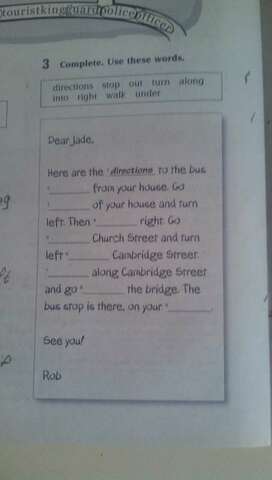 touristkingguardpoliceofficer
3 Complete. Use these words.
directions stop out turn along
into right walk under
Dear Jade,
Here are the ¹directions to the bus
²______ from your house. Go
³______ of your house and turn
left. Then ⁴______ right. Go
⁵______ Church Street and turn
left ⁶______ Cambridge Street.
⁷______ along Cambridge Street
and go ⁸______ the bridge. The
bus stop is there, on your ⁹______.
See you!
Rob